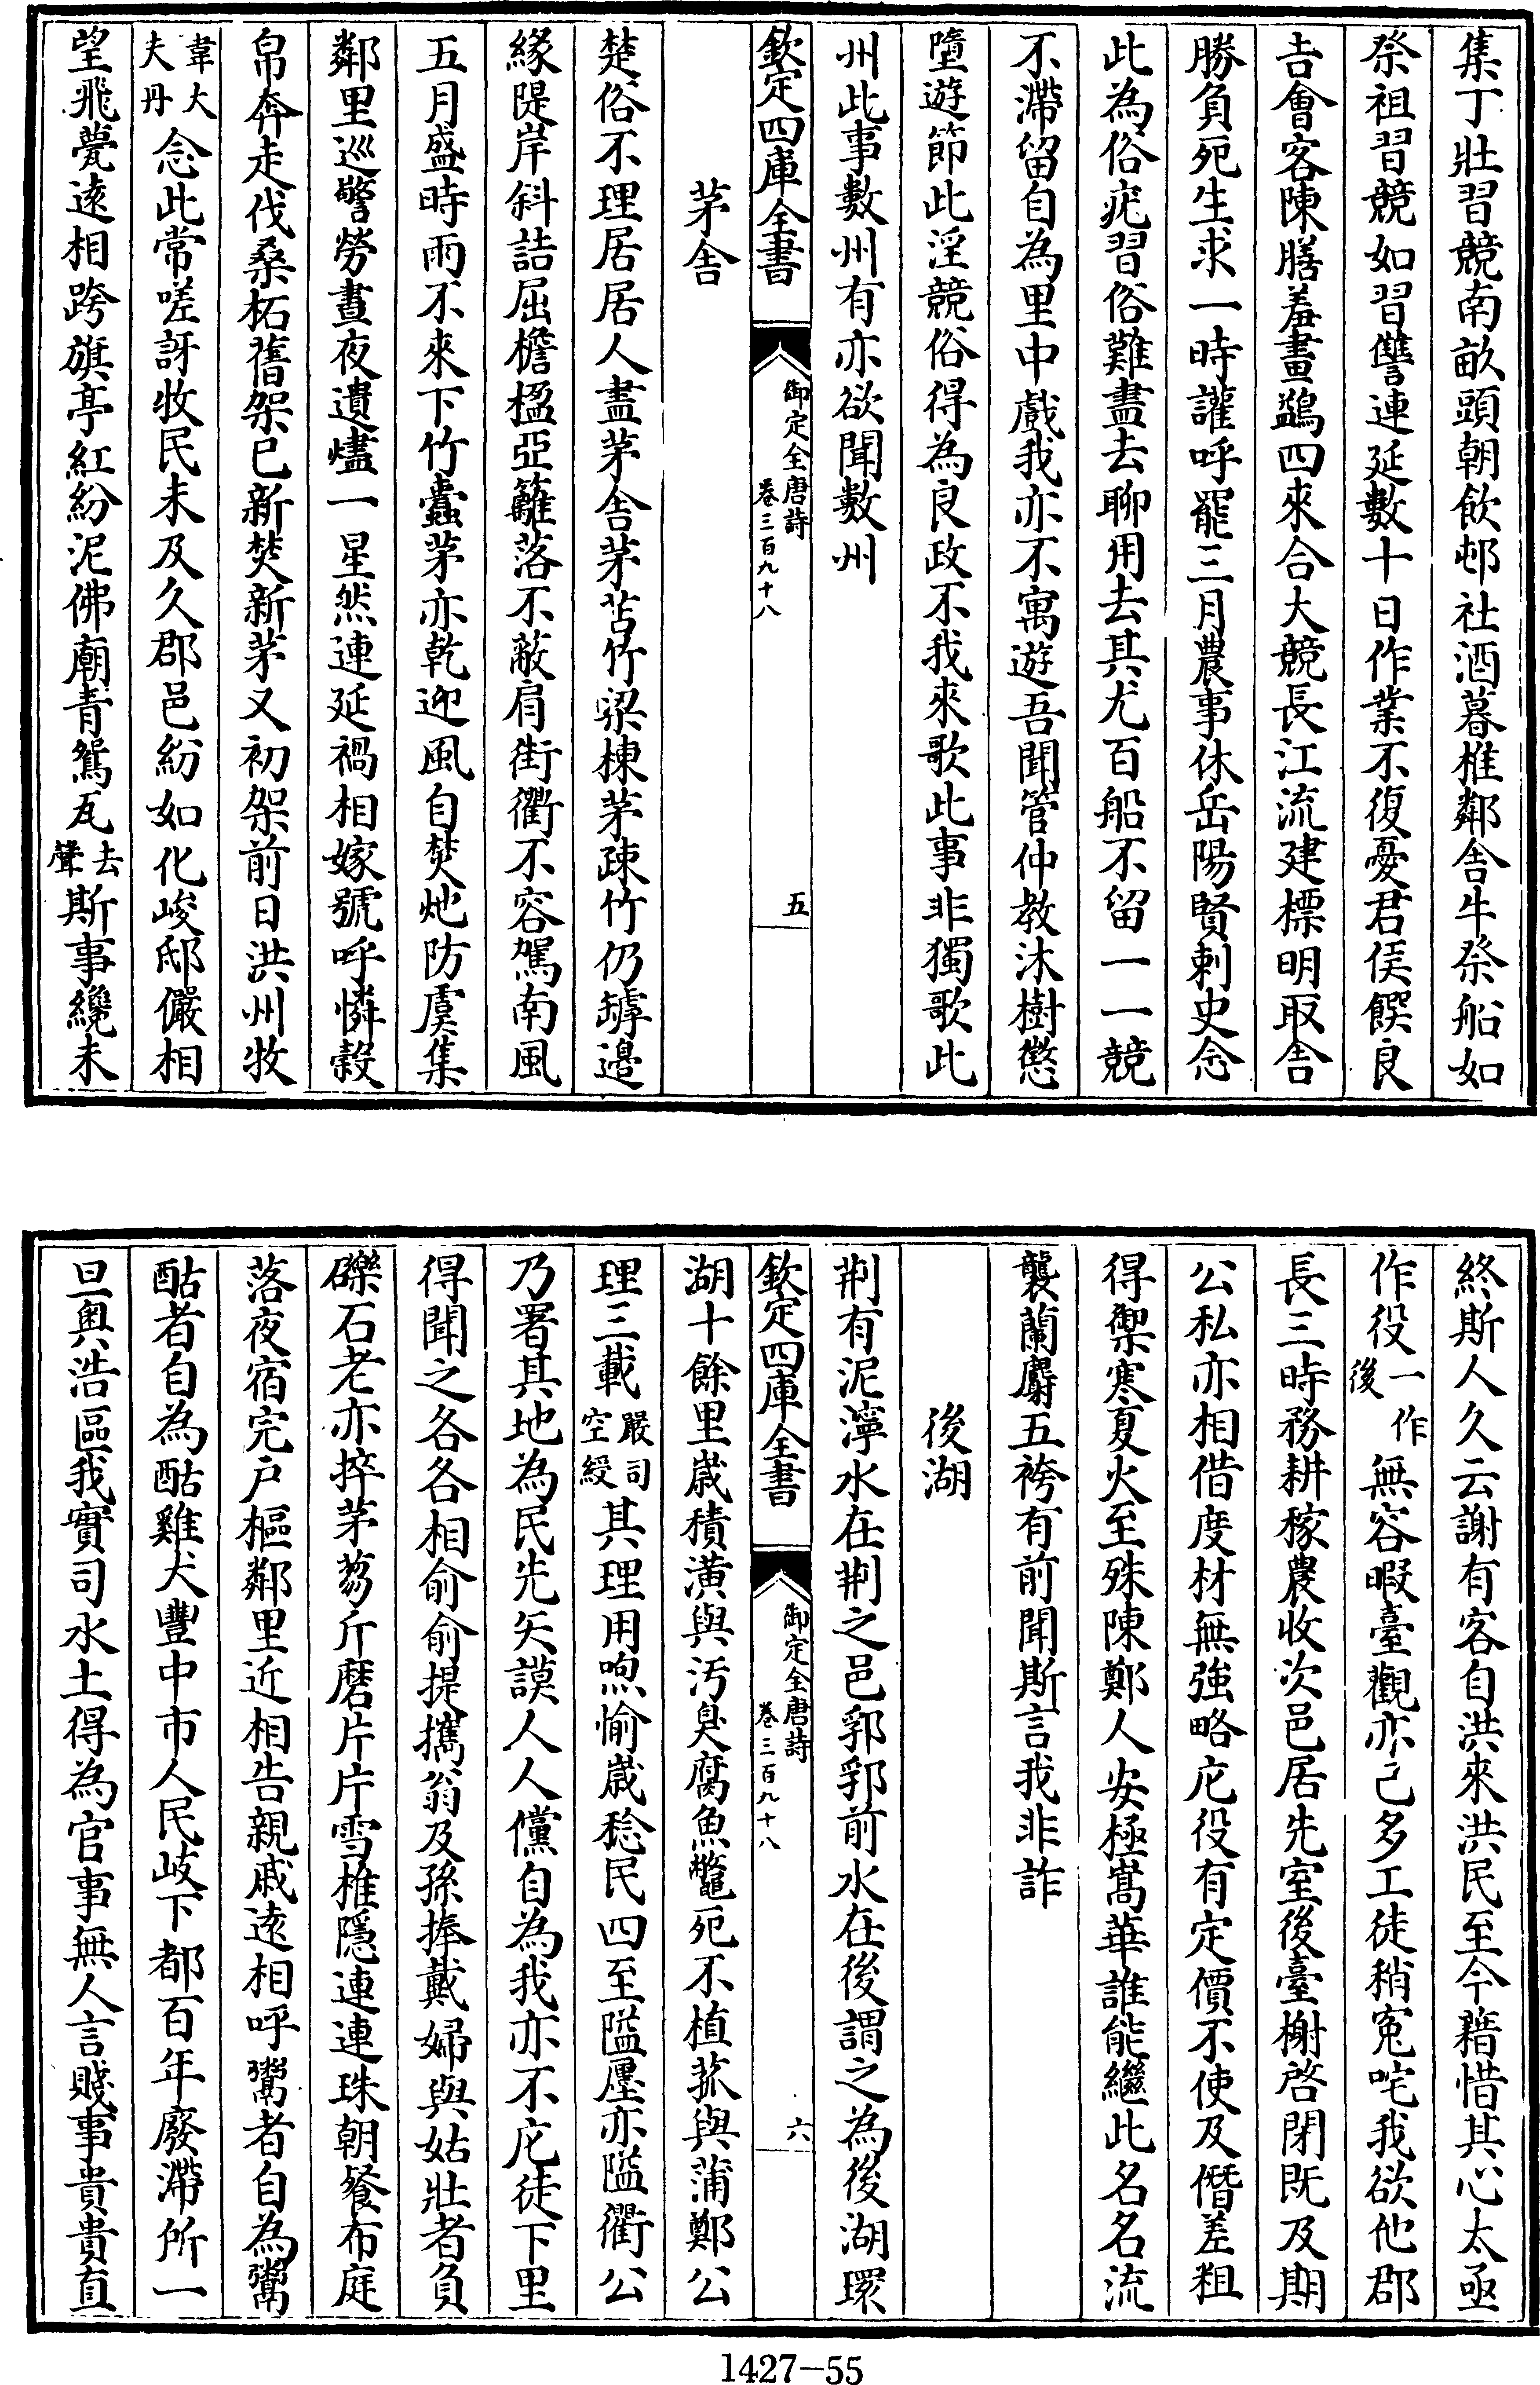 集丁壯習競南畝頭朝飲邨社酒暮椎鄰舍牛祭船如
祭祖習競如習讐連延數十日作業不復憂君侯饌良
吉會客陳膳羞畫鷁四來合大競長江流建標明取舍
勝負死生求一時讙呼罷三月農事休岳陽賢刺史念
此為俗疣習俗難盡去聊用去其尤百船不留一一競
不滯留自為里中戲我亦不寓遊吾聞管仲教沐樹懲
墮遊節此淫競俗得為良政不我來歌此事非獨歌此
州此事數州有亦欲聞數州
欽定四庫全書 御定全唐詩 卷三百九十八 五
茅舍
楚俗不理居居人盡茅舍茅苫竹梁棟茅疎竹仍罅邊
緣隄岸斜詰屈檐楹亞籬落不蔽肩街衢不容駕南風
五月盛時雨不來下竹蠹茅亦乾迎風自焚灺防虞集
鄰里巡警勞晝夜遺燼一星然連延禍相嫁號呼憐穀
帛奔走伐桑柘舊架已新焚新茅又初架前日洪州牧
韋大夫丹念此常嗟訝牧民未及久郡邑紛如化峻邸儼相
望飛甍遠相跨旗亭紅紛泥佛廟青鴛瓦去聲斯事纔未
終斯人久云謝有客自洪來洪民至今藉惜其心太亟
作役一作後無容暇臺觀亦已多工徒稍冤咤我欲他郡
長三時務耕稼農收次邑居先室後臺榭啓閉既及期
公私亦相借度材無強略庀役有定價不使及僭差粗
得禦寒夏火至殊陳鄭人安極嵩華誰能繼此名名流
襲蘭麝五袴有前聞斯言我非詐
後湖
荆有泥濘水在荆之邑郛郛前水在後謂之為後湖環
欽定四庫全書 御定全唐詩 卷三百九十八 六
湖十餘里歲積潢與汚臭腐魚鼈死不植菰與蒲鄭公
理三載嚴司空綬其理用喣愉歲稔民四至隘廛亦隘衢公
乃署其地為民先矢謨人人儻自為我亦不庀徒下里
得聞之各各相俞俞提攜翁及孫捧戴婦與姑壯者負
礫石老亦捽茅蒭斤磨片片雪椎隱連連珠朝餐布庭
落夜宿完戶樞鄰里近相告親戚遠相呼鬻者自為鬻
酤者自為酤雞犬豐中市人民岐下都百年廢滯所一
旦奥浩區我實司水土得為官事無人言賤事貴貴直
1427-55